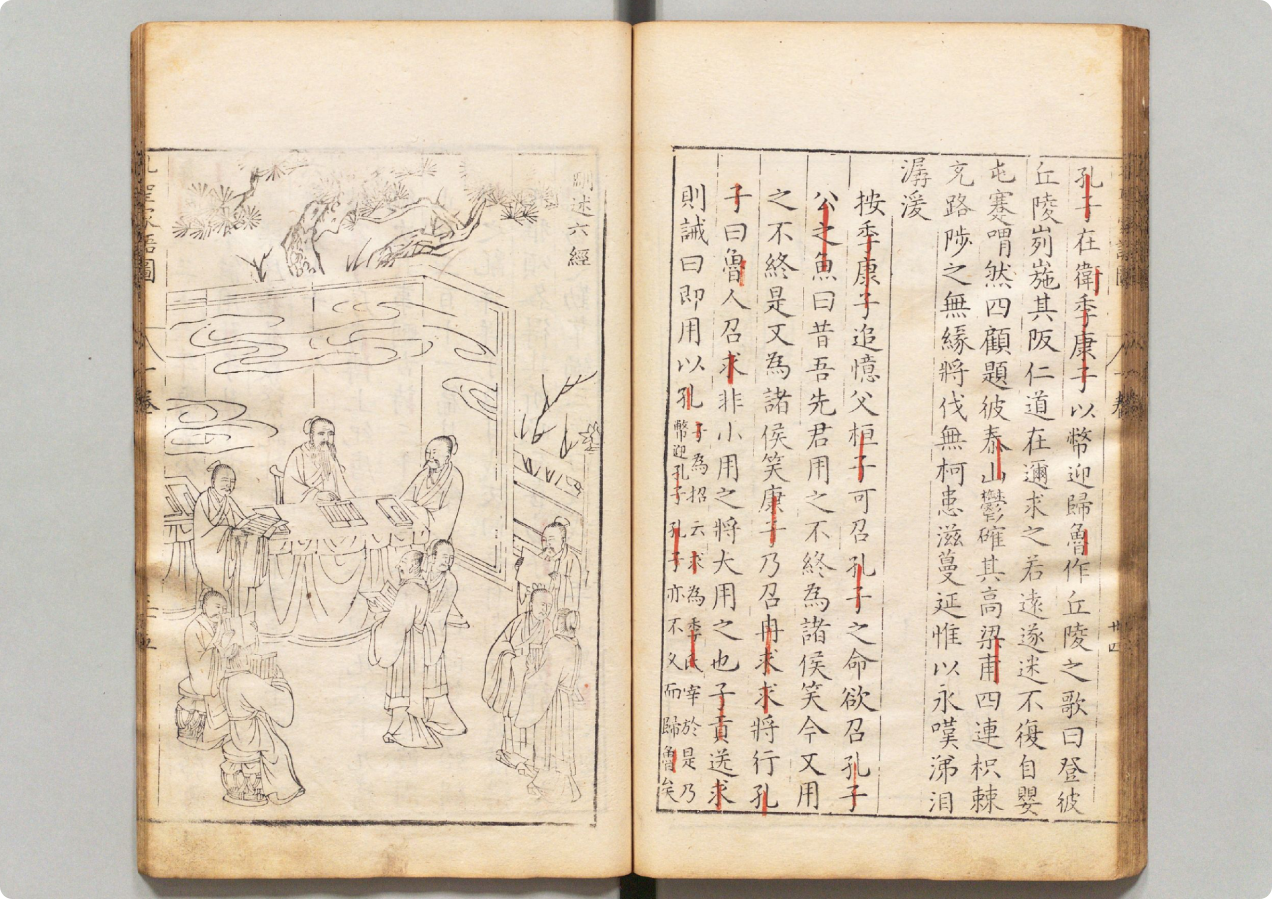 孔子在衛季康子以幣迎歸魯作丘陵之歌曰登彼
丘陵峛崺其阪仁道在邇求之若遠遂迷不復自嬰
屯蹇喟然四顧題彼泰山鬱確其高梁甫四連枳棘
充路陟之無緣將伐無柯患滋蔓延惟以永嘆涕泪
潺湲
按季康子追憶父桓子可召孔子之命欲召孔子
公之魚曰昔吾先君用之不終為諸侯笑今又用
之不終是又為諸侯笑康子乃召冉求求將行孔
子曰魯人召求非小用之將大用之也子貢送求
則誡曰即用以孔子為招云求為季氏宰於是乃
幣迎孔子孔子亦不久而歸魯矣
刪述六經
孔聖家語圖
卷